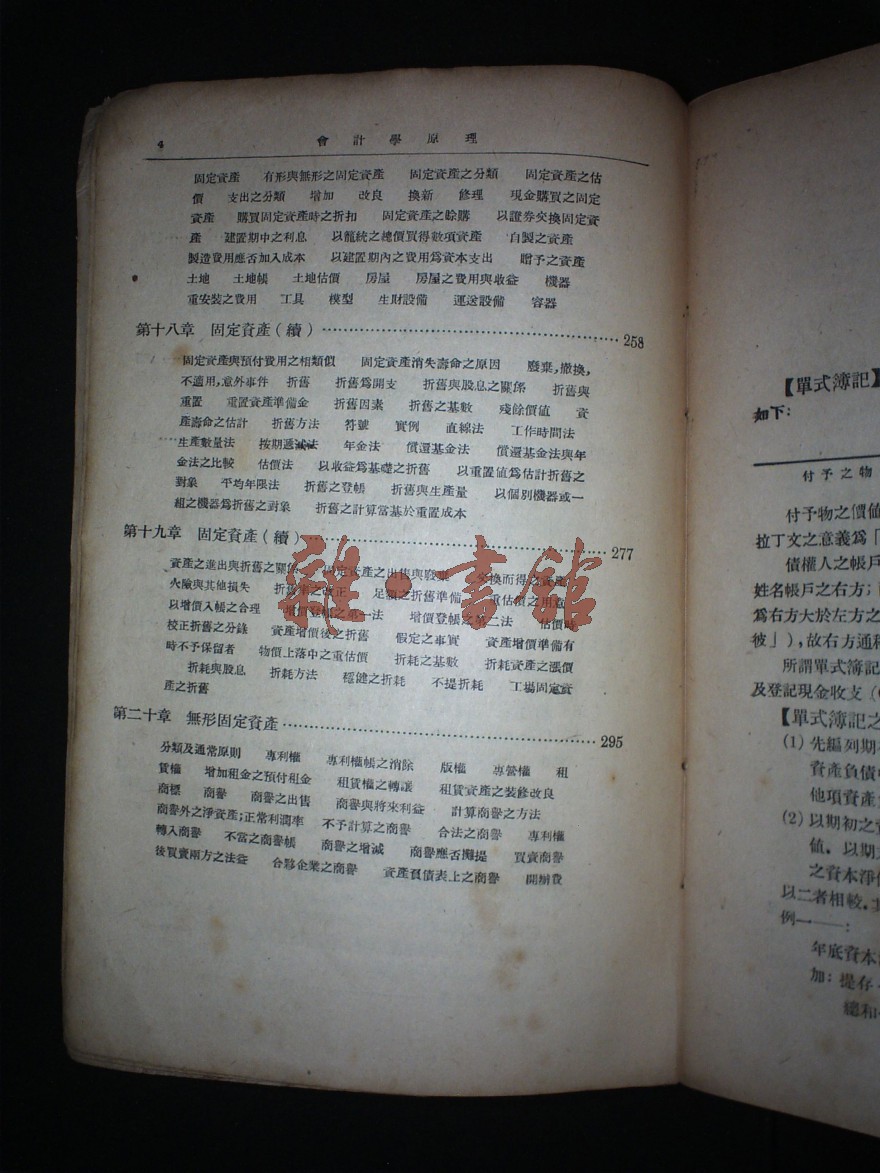 4 會計學原理
固定資產 有形與無形之固定資產 固定資產之分類 固定資產之估
價 支出之分類 增加 改良 換新 修理 現金購買之固定
資產 購買固定資產時之折扣 固定資產之賒購 以證券交換固定資
產 建置期中之利息 以籠統之總價買得數項資產 自製之資產
製造費用應否加入成本 以建置期內之費用爲資本支出 贈予之資產
土地 土地帳 土地估價 房屋 房屋之費用與收益 機器
重安裝之費用 工具 模型 生財設備 運送設備 容器
第十八章 固定資產(續)⋯⋯258
固定資產與預付費用之相類似 固定資產消失壽命之原因 廢棄,撤換,
不適用,意外事件 折舊 折舊爲開支 折舊與股息之關係 折舊與
重置 重置資產準備金 折舊因素 折舊之基數 殘餘價值 資
產壽命之估計 折舊方法 符號 實例 直線法 工作時間法
生產數量法 按期遞減法 年金法 償還基金法 償還基金法與年
金法之比較 估價法 以收益爲基礎之折舊 以重置値爲估計折舊之
對象 平均年限法 折舊之登帳 折舊與生產量 以個別機器或一
組之機器爲折舊之對象 折舊之計算當基於重置成本
第十九章 固定資產(續)⋯⋯277
資產之進出與折舊之關係 固定資產之出售與廢棄 交換而得之資產
火險與其他損失 折舊率之改正 足額之折舊準備 重估價之用意
以增價入帳之合理 增價登帳之第一法 增價登帳之第二法 估價時
校正折舊之分錄 資產增價後之折舊 假定之事實 資產增價準備有
時不予保留者 物價上落中之重估價 折耗之基數 折耗資產之漲價
折耗與股息 折耗方法 穩健之折耗 不提折耗 工場固定資
產之折舊
第二十章 無形固定資產⋯⋯295
分類及通常原則 專利權 專利權帳之消除 版權 專營權 租
賃權 增加租金之預付租金 租賃權之轉讓 租賃資產之裝修改良
商標 商譽 商譽之出售 商譽與將來利益 計算商譽之方法
商譽外之淨資產;正常利潤率 不予計算之商譽 合法之商譽 專利權
轉入商譽 不當之商譽帳 商譽之增減 商譽應否攤提 買賣商譽
後買賣兩方之法益 合夥企業之商譽 資產負債表上之商譽 開辦費
雜·書館
【單式簿記】
如下:
付予之物
付予物之價值
拉丁文之意義爲「
債權人之帳戶
姓名帳戶之右方;
爲右方大於左方之
彼」),故右方通稱
所謂單式簿記
及登記現金收支(
【單式簿記之
(1) 先編列期
資產負債
他項資產
(2) 以期初之
值,以期
之資本淨値
以二者相較,
例一——:
年底資本
加:提存
總和